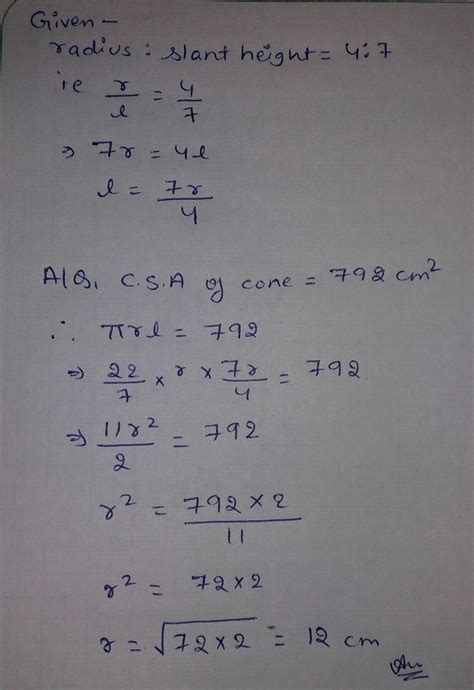 Given –
radius : slant height = 4:7
ie r/l = 4/7
⇒ 7r = 4l
l = 7r/4
A/Q, C.S.A of cone = 792 cm²
∴ πrl = 792
⇒ 22/7 × r × 7r/4 = 792
⇒ 11r²/2 = 792
r² = 792×2/11
r² = 72×2
r = √72×2 = 12 cm
Ans